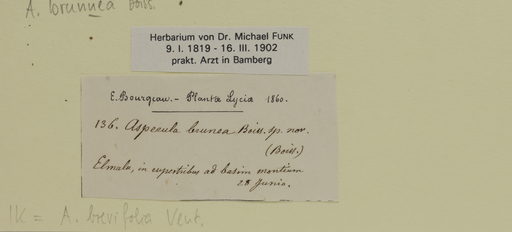 A. brunnea Boiss.
Herbarium von Dr. Michael FUNK
9. I. 1819 - 16. III. 1902
prakt. Arzt in Bamberg
E. Bourgeau. - Plantæ Lyciæ 1860.
136. Asperula brunea Boiss. sp. nov.
(Boiss.)
Elmalu, in rupestribus ad basim montium
28 Junio.
IK = A. brevifolia Vent.